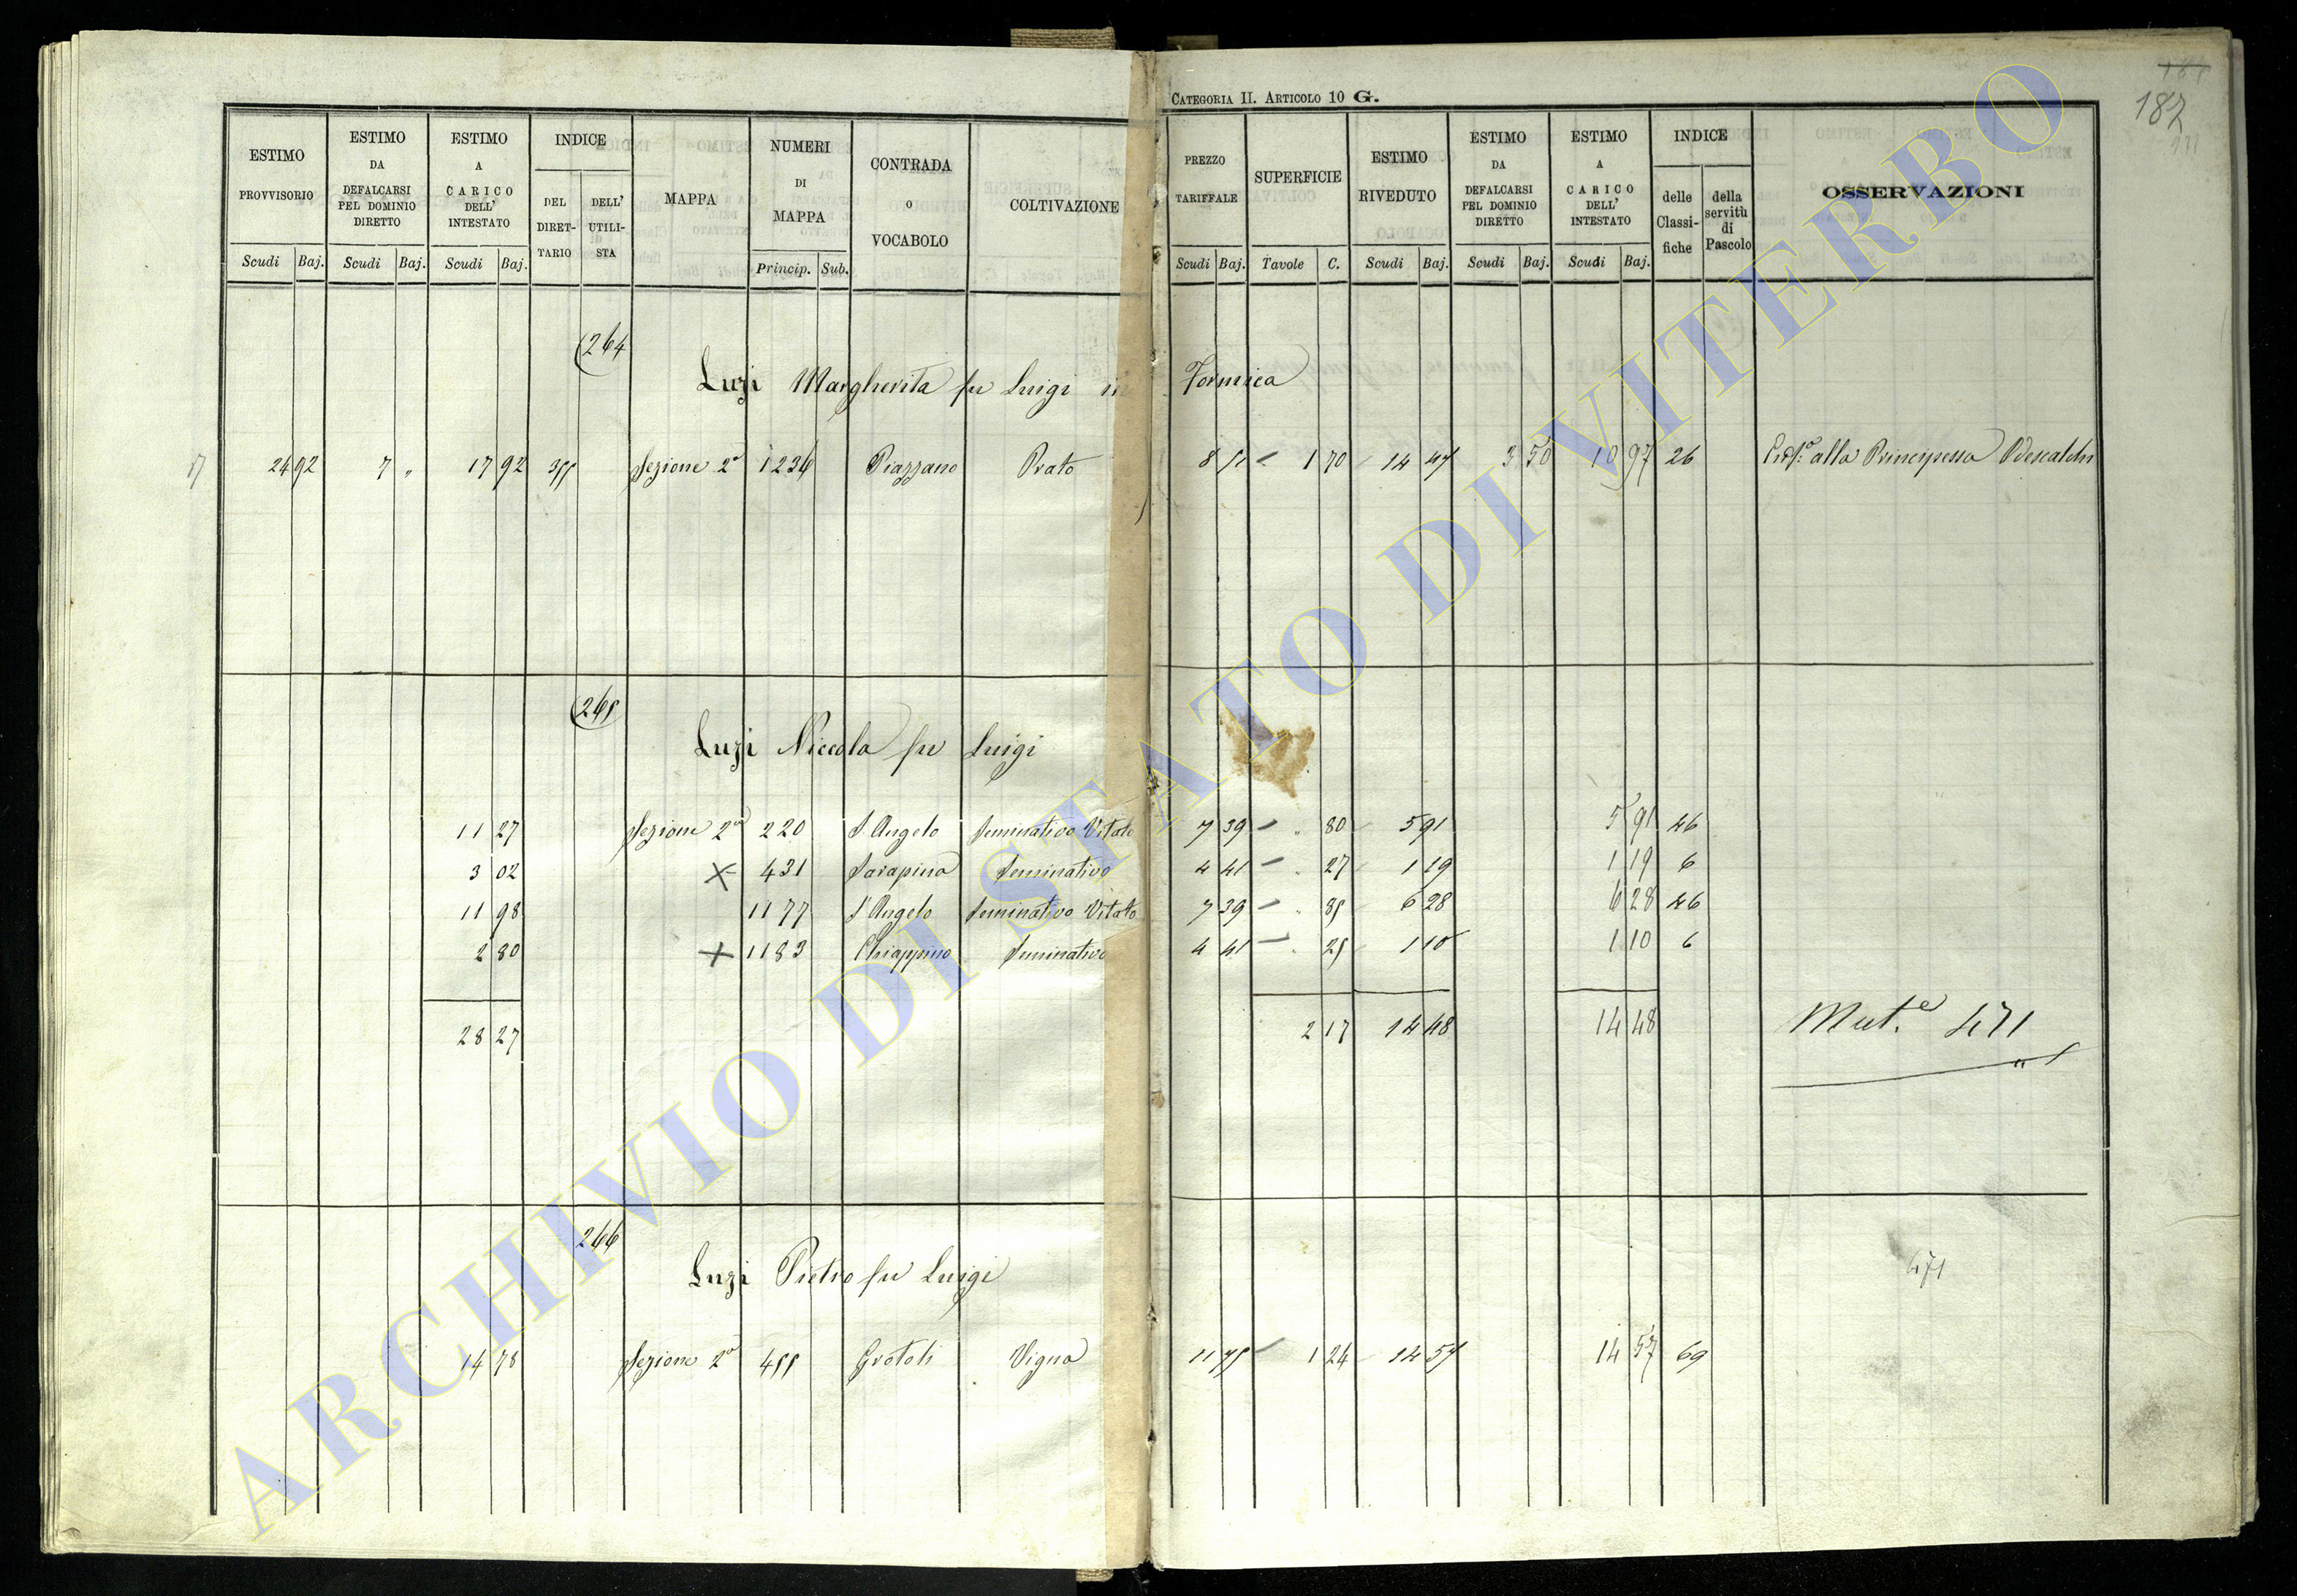 CATEGORIA II. ARTICOLO 10 G.
187
ESTIMO PROVVISORIO
ESTIMO DA DEFALCARSI PEL DOMINIO DIRETTO
ESTIMO A CARICO DELL' INTESTATO
INDICE
DEL DIRETTARIO
DELL' UTILISTA
MAPPA
NUMERI DI MAPPA
CONTRADA O VOCABOLO
COLTIVAZIONE
PREZZO TARIFFALE
SUPERFICIE
ESTIMO RIVEDUTO
ESTIMO DA DEFALCARSI PEL DOMINIO DIRETTO
ESTIMO A CARICO DELL' INTESTATO
INDICE
delle Classifiche
della servitù di Pascolo
OSSERVAZIONI
Scudi Baj. Scudi Baj. Scudi Baj. Princip. Sub. Scudi Baj. Tavole C. Scudi Baj. Scudi Baj. Scudi Baj.
264
Luzi Margherita fu Luigi in Formica
24 92 7 „ 17 92 355 Sezione 2a 1236 Piazzano Prato 8 51 1 70 14 47 3 50 10 97 26 alla Principessa Odescalchi
265
Luzi Niccola fu Luigi
11 27 Sezione 2a 220 S Angelo Seminativo Vitato 7 39 „ 80 5 91 5 91 46
3 02 × 431 Sarapina Seminativo 4 41 „ 27 1 19 1 19 6
11 98 1177 S Angelo Seminativo Vitato 7 39 „ 85 6 28 6 28 46
2 80 × 1183 Chiappino Seminativo 4 41 „ 25 1 10 1 10 6
28 27 2 17 14 48 14 48 Mut.e 471
266
Luzi Pietro fu Luigi
471
14 78 Sezione 2a 455 Grotoli Vigna 11 75 1 24 14 57 14 57 69
ARCHIVIO DI STATO DI VITERBO